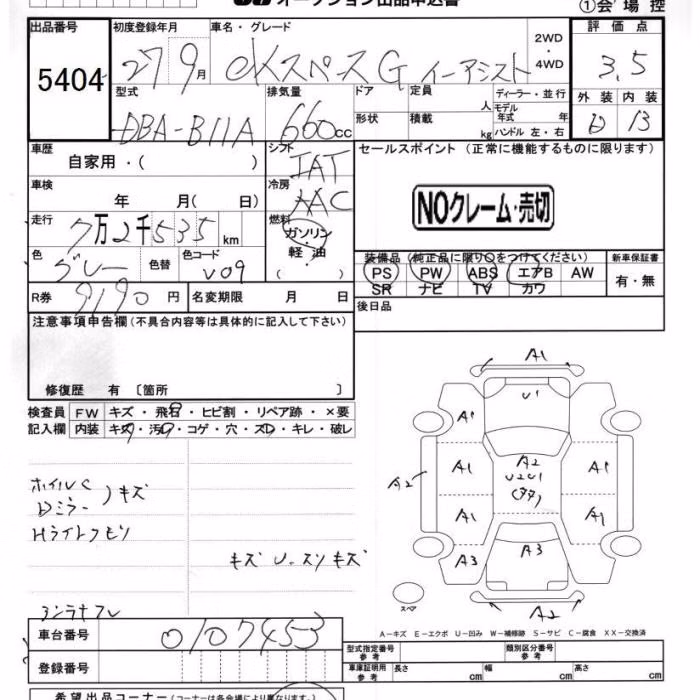 オークション出品申込書
①会場控
出品番号 初度登録年月 車名・グレード 評価点
5404 27 9月 eKスペース G イーアシスト 2WD・4WD 3.5
型式 排気量 ドア 定員 人 ディーラー・並行 外装 内装
DBA-B11A 660cc 形状 積載 kg モデル年式 年 ハンドル 左・右 D B
車歴 自家用・( ) シフト IAT セールスポイント (正常に機能するものに限ります)
車検 年 月( 日) 冷房 AAC
NOクレーム・売切
走行 7万2千535km 燃料 ガソリン・軽油・( )
色 グレー 色替 色コード V09
装備品(純正品に限り○をつけてください) 新車保証書
PS PW ABS エアB AW 有・無
SR ナビ TV カワ
R券 9190円 名変期限 月 日 後日品
注意事項申告欄(不具合内容等は具体的に記入して下さい)
修復歴 有 〔箇所 〕
検査員 FW キズ・飛石・ヒビ割・リペア跡・×要
記入欄 内装 キズ・汚れ・コゲ・穴・スレ・キレ・破レ
A1
U1
A1
A1 A2 A1
A2 U2U1
A1 A1
A3 A3
A2
ホイルC
Dミラー )キズ
Hライトクモリ
キズ U.スリキズ
スペア
A-キズ E-エクボ U-凹み W-補修跡 S-サビ C-腐食 XX-交換済
車台番号 0107453
型式指定番号 参考 類別区分番号 参考
登録番号 車庫証明用 参考 長さ cm 幅 cm 高さ cm
希望出品コーナー(コーナーは各会場により異なります。)